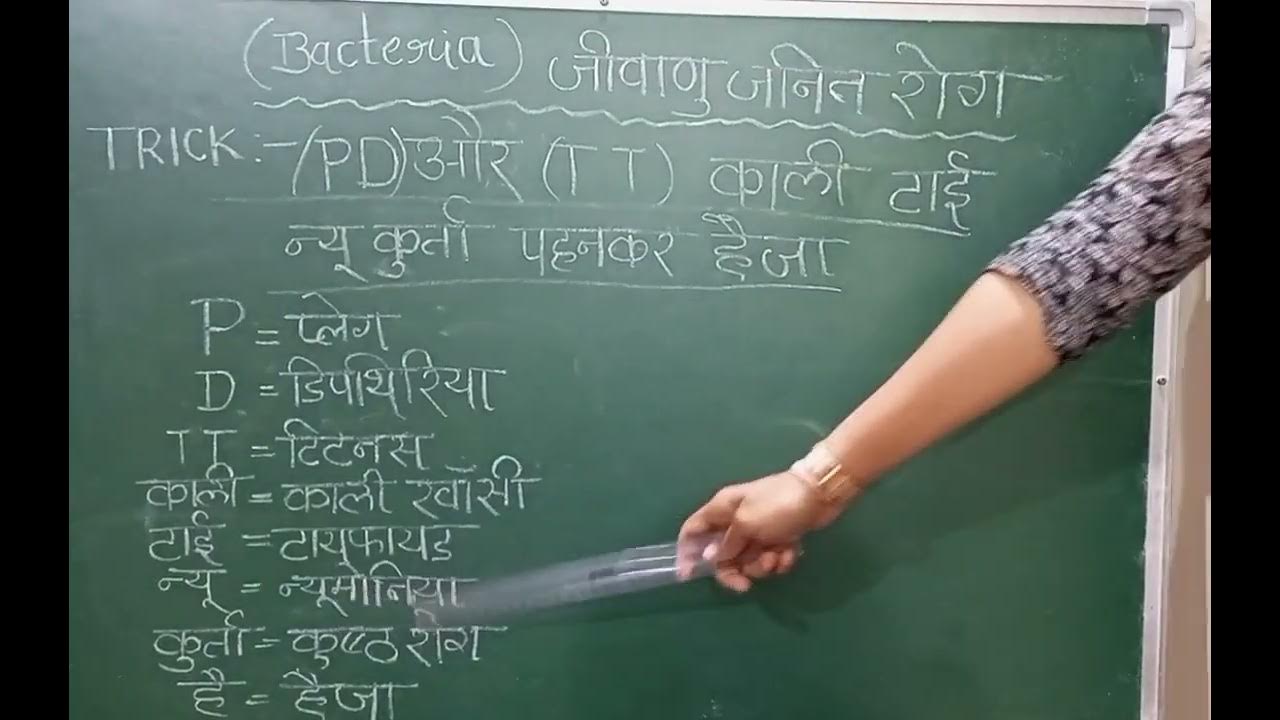 (Bacteria) जीवाणु जनित रोग
TRICK:- (PD) और (TT) काली टाई
न्यू कुर्ता पहनकर हैजा
P = प्लेग
D = डिपीथिरिया
TT = टिटनस
काली = काली खाँसी
टाई = टायफायड
न्यू = न्यूमोनिया
कुर्ता = कुष्ठ रोग
है = हैजा